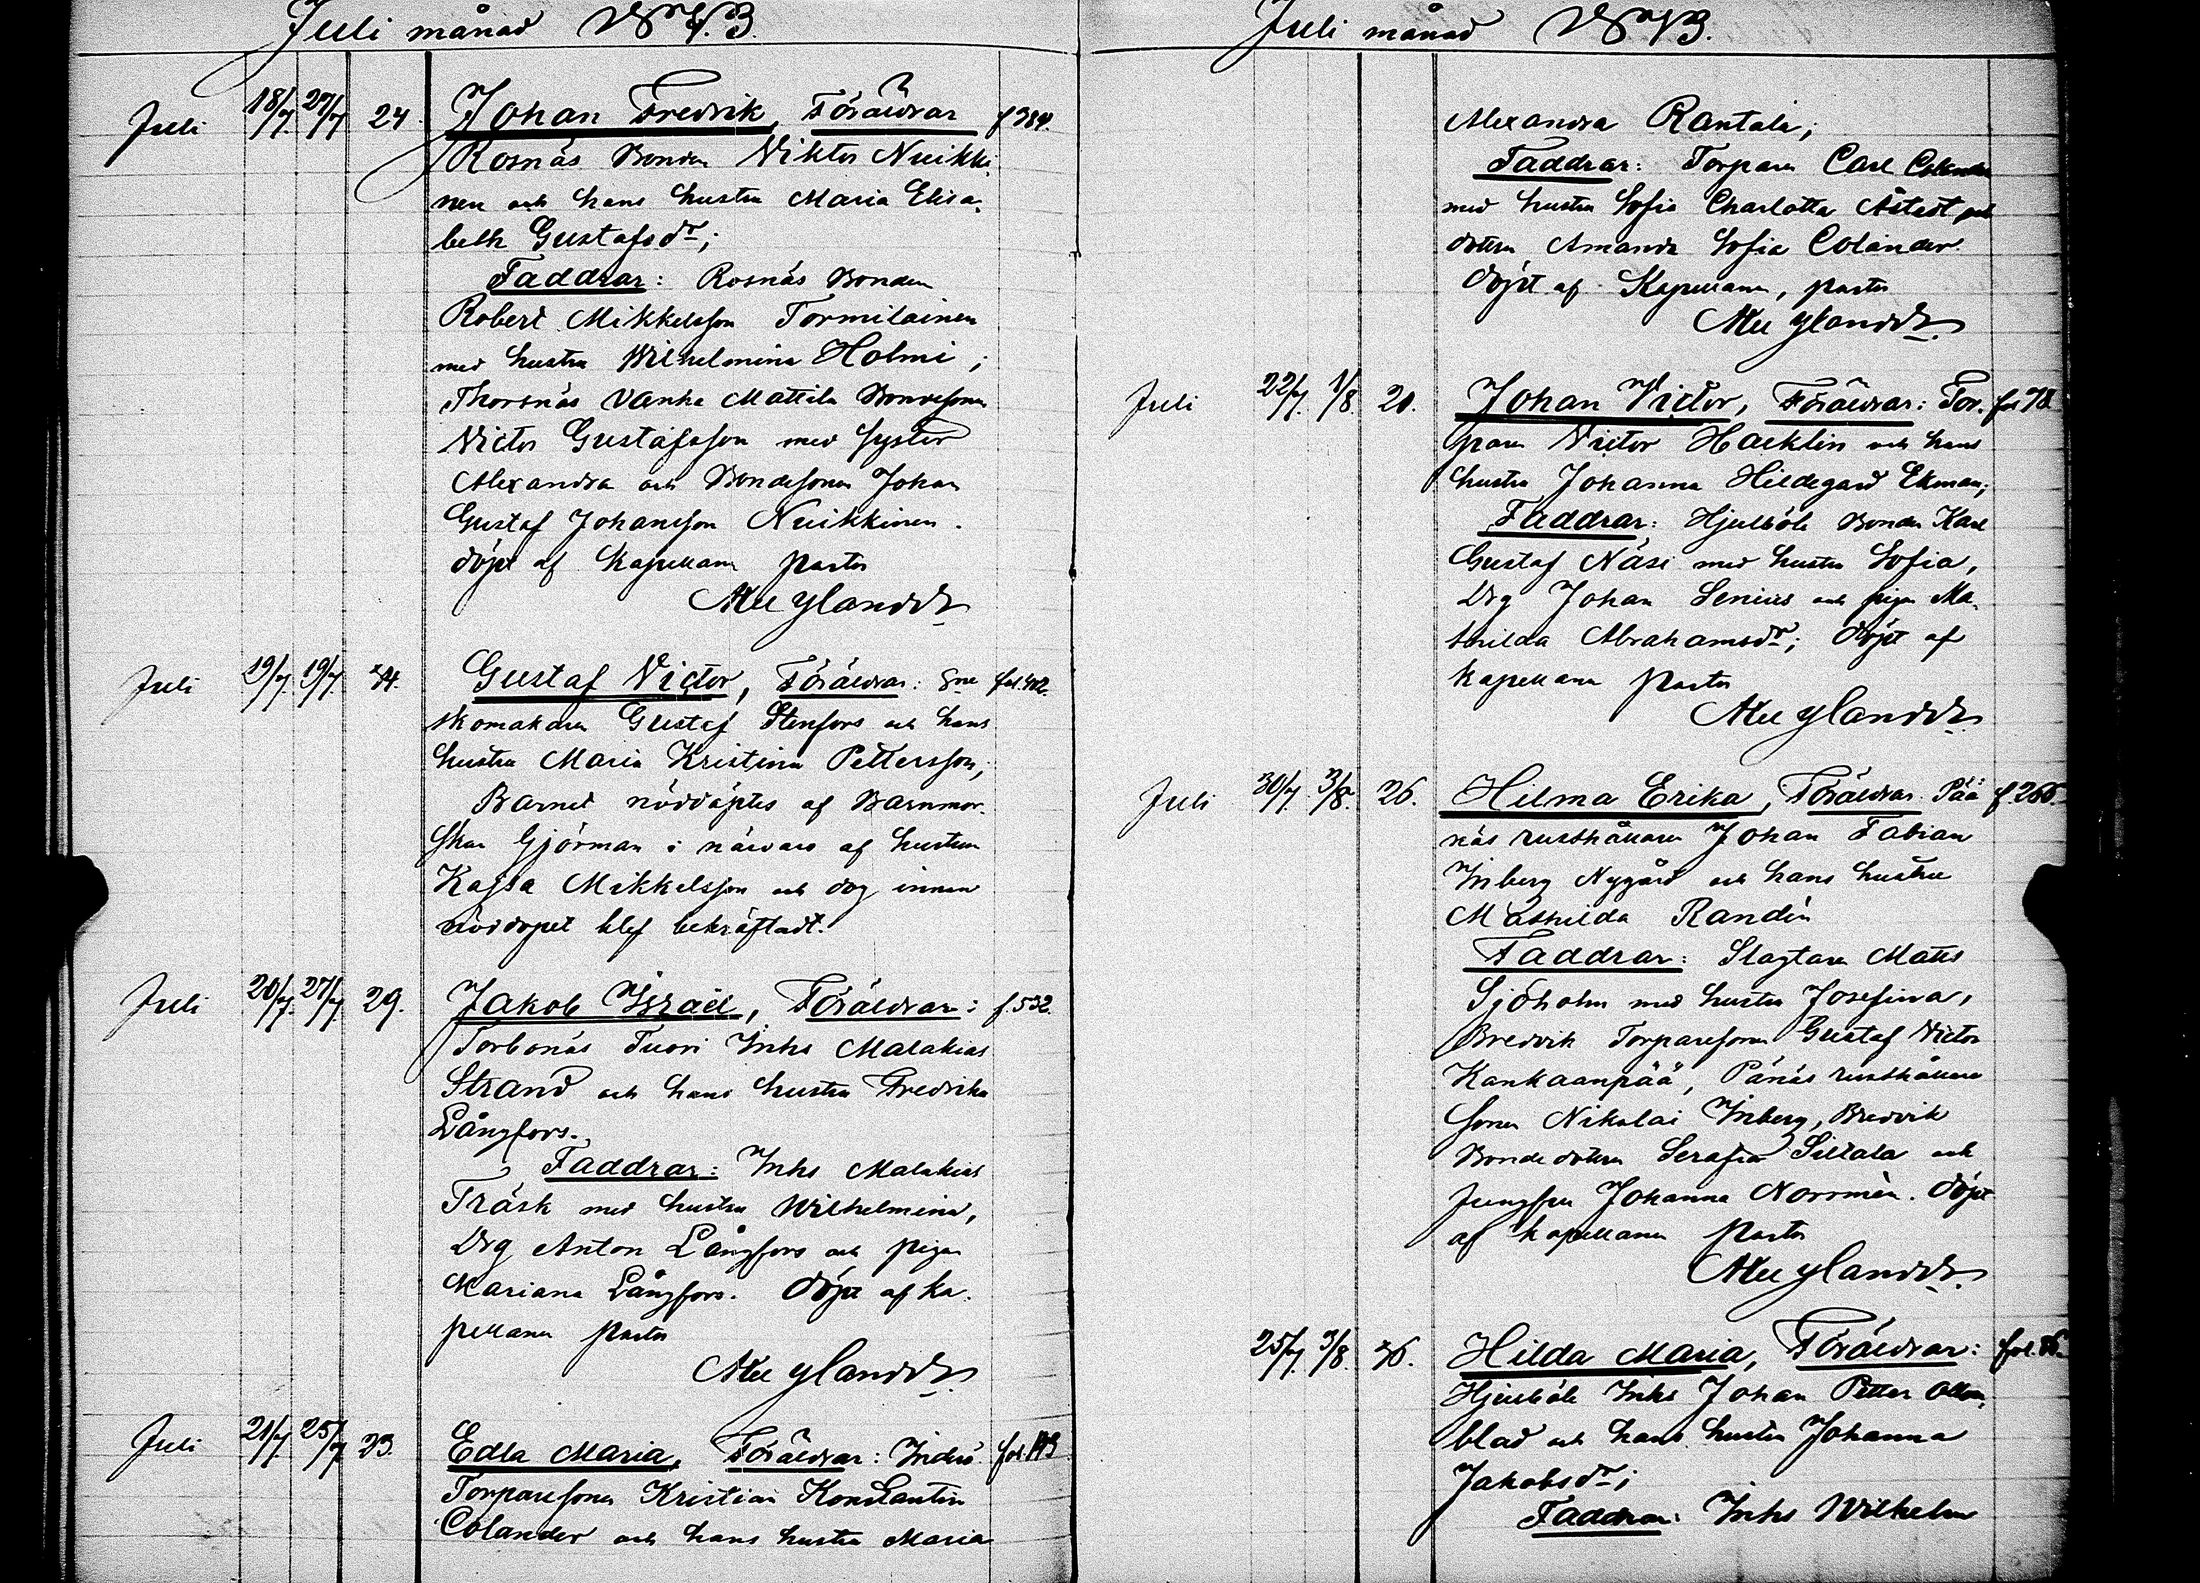 Juli månad 1873.
Juli 18/7. 27/7 24. Johan Fredrik, Föräldrar f 384.
Rosnäs Bonden Viktor Nuikki-
nen och hans hustru Maria Elisa-
beth Gustafsdr;
Faddrar: Rosnäs Bonden
Robert Mikkelsson Tormilainen
med hustru Wilhelmina Holmi;
Thorsnäs Vanha Mattila Bondesonen
Victor Gustafsson med syster
Alexandra och Bondesonen Johan
Gustaf Johansson Nuikkinen.
döpt af Kapellanen pastor
Juli 19/7. 19/7. Gustaf Victor, Föräldrar:
skomakaren Gustaf Stenfors och hans
hustru Maria Kristina Pettersson;
Barnet nöddöptes af Barnmor-
skan Gjörman i närvaro af hustrun
Kajsa Mikkelsson och dog innan
nöddopet blef bekräftadt.
Juli 20/7. 27/7 29. Jakob Israel, Föräldrar: f. 532.
Torbonäs Tuori Inhs Malakias
Strand och hans hustru Fredrika
Långfors.
Faddrar: Inhs Malakias
Träsk med hustru Wilhelmina,
Drg Anton Långfors och pigan
Mariana Långfors. Döpt af ka-
pellanen pastor
Juli 21/7. 25/7 23. Edla Maria, Föräldrar: Inderö
Torparesonen Kristian Konstantin
Colander och hans hustru Maria
Juli månad 1873.
Alexandra Rantala;
Faddrar: Torparen Carl Colander
med hustru Sofia Charlotta och
dottern Amanda Sofia Colander.
döpt af Kapellanen, pastor
Juli 22/7. 1/8. 20. Johan Victor, Föräldrar: Tor- fol 78.
paren Victor Hacklin och hans
hustru Johanna Hildegard Ekman;
Faddrar: Hjulböle Bonden Karl
Gustaf Näsi med hustru Sofia,
Drg Johan Senius och pigan Ma-
thilda Abrahamsdr; Döpt af
Kapellanen pastor
Juli 30/7. 3/8. 26. Hilma Erika, Föräldrar: Påå- f. 266.
näs rusthållaren Johan Fabian
Inberg Nygård och hans hustru
Mathilda Randén
Faddrar: Slagtaren Matts
Sjöholm med hustru Josefina,
Bredvik Torparesonen Gustaf Victor
Kankaanpää, Pånäs rusthållare
sonen Nikolai Inberg, Bredvik
Bonde dottern Serafia Siltala och
jungfru Johanna Norrmèn. Döpt
af kapellanen Pastor
25/7. 3/8. Hilda Maria, Föräldrar: fol. 86.
Hjulböle Inhs Johan Petter
blad och hans hustru Johanna
Jakobsdr;
Faddrar: Inhs Wilhelm